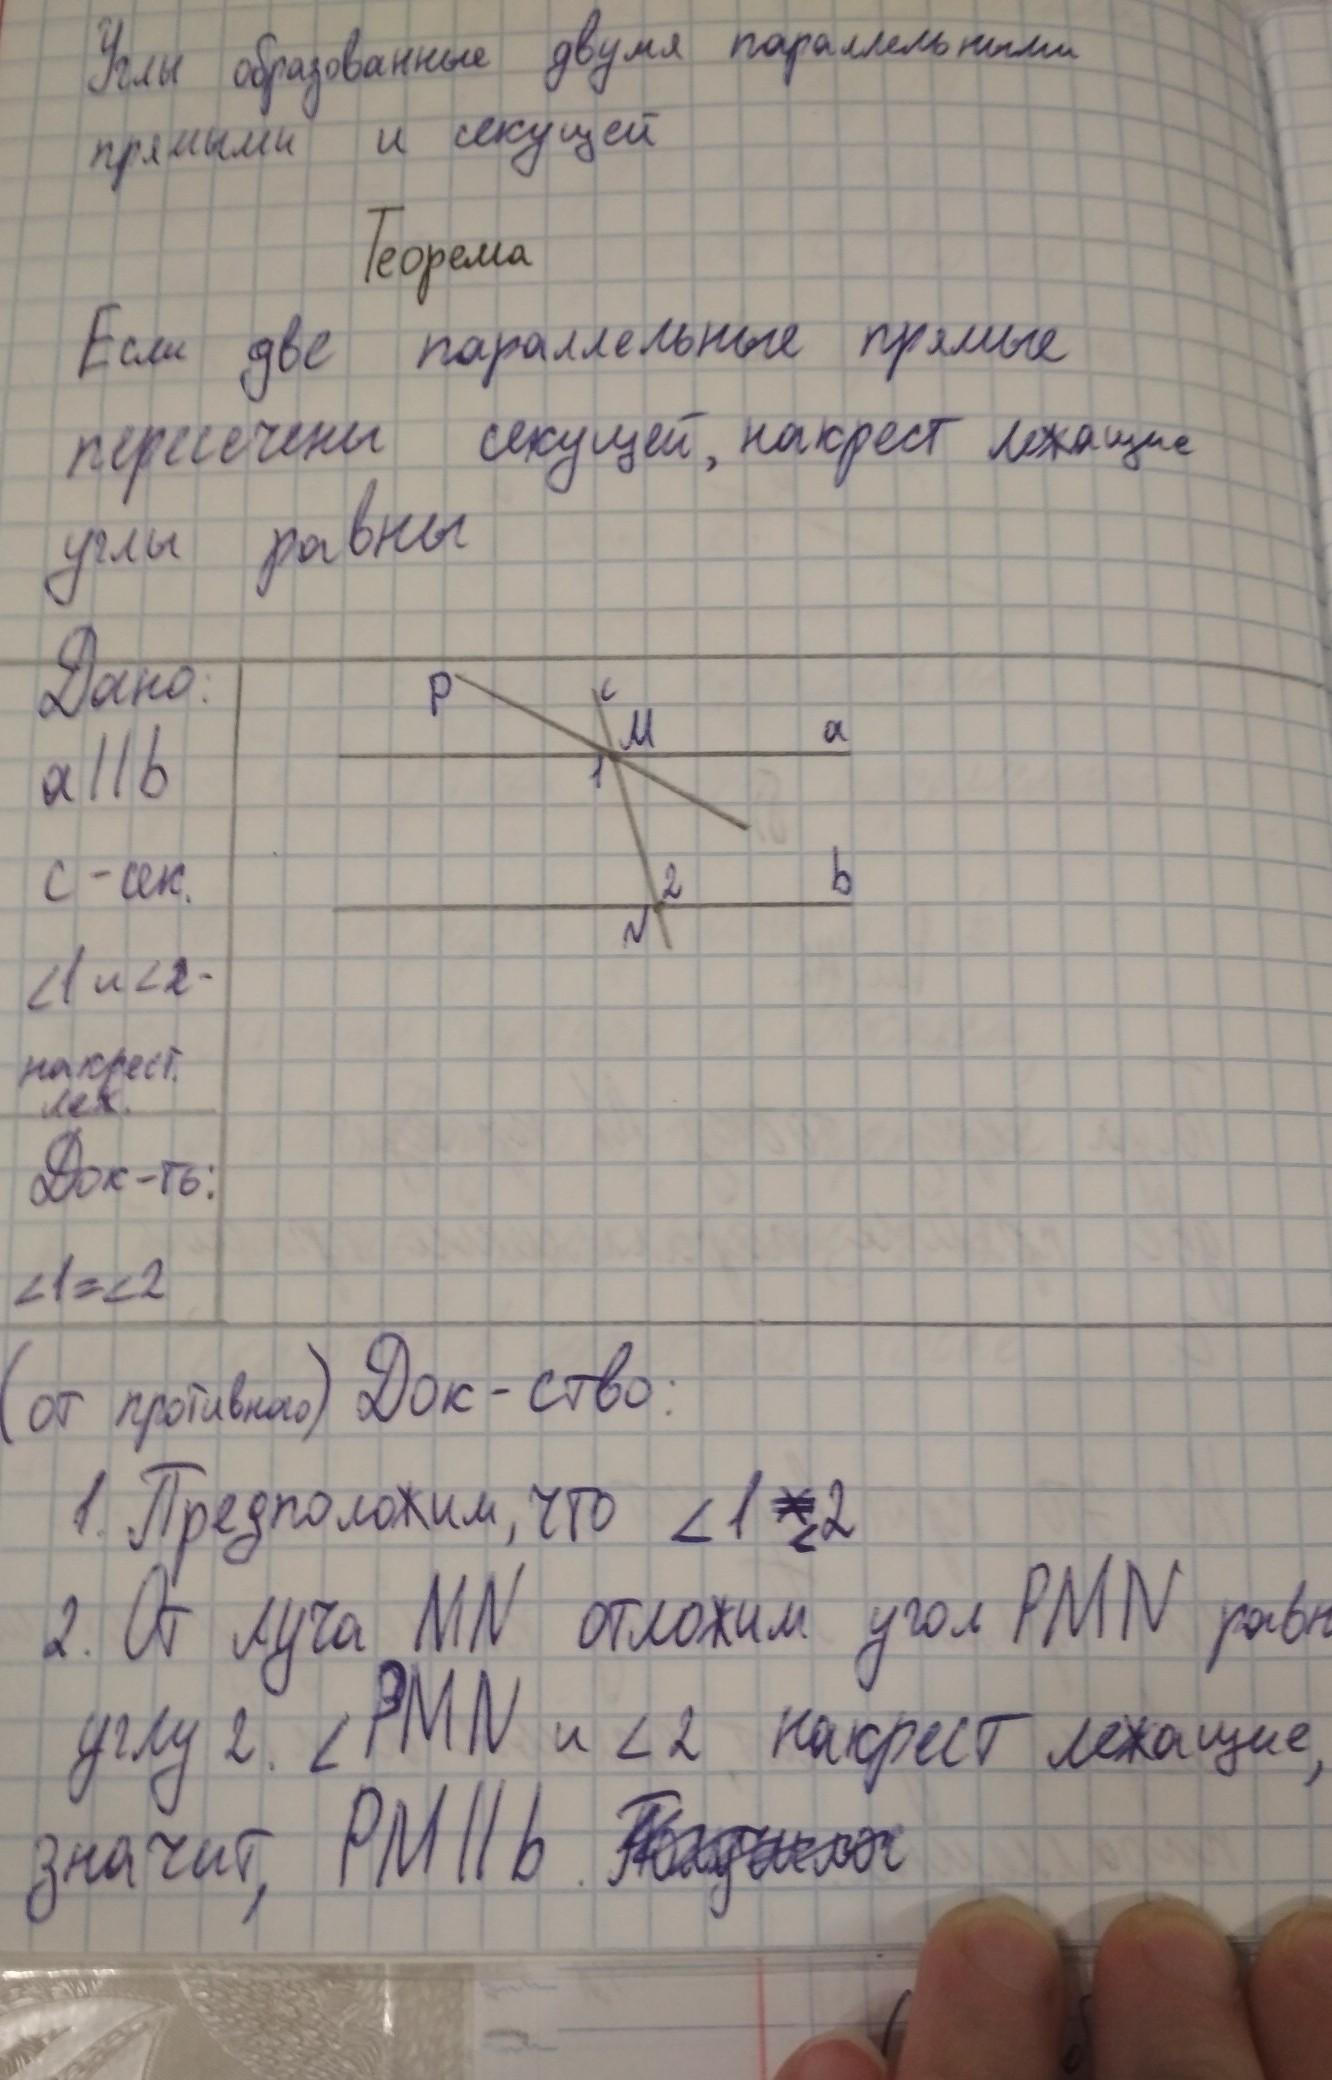 Углы образованные двумя параллельными
прямыми и секущей
Теорема
Если две параллельные прямые
пересечены секущей, накрест лежащие
углы равны
Дано:
a||b
c-сек.
∠1 и ∠2-
накрест.
леж.
Док-ть:
∠1=∠2
P c
M a
1
2 b
N
(от противного) Док-ство:
1. Предположим, что ∠1 ≠ ∠2
2. От луча MN отложим угол PMN равн
углу 2. ∠PMN и ∠2 накрест лежащие,
значит, PM||b.